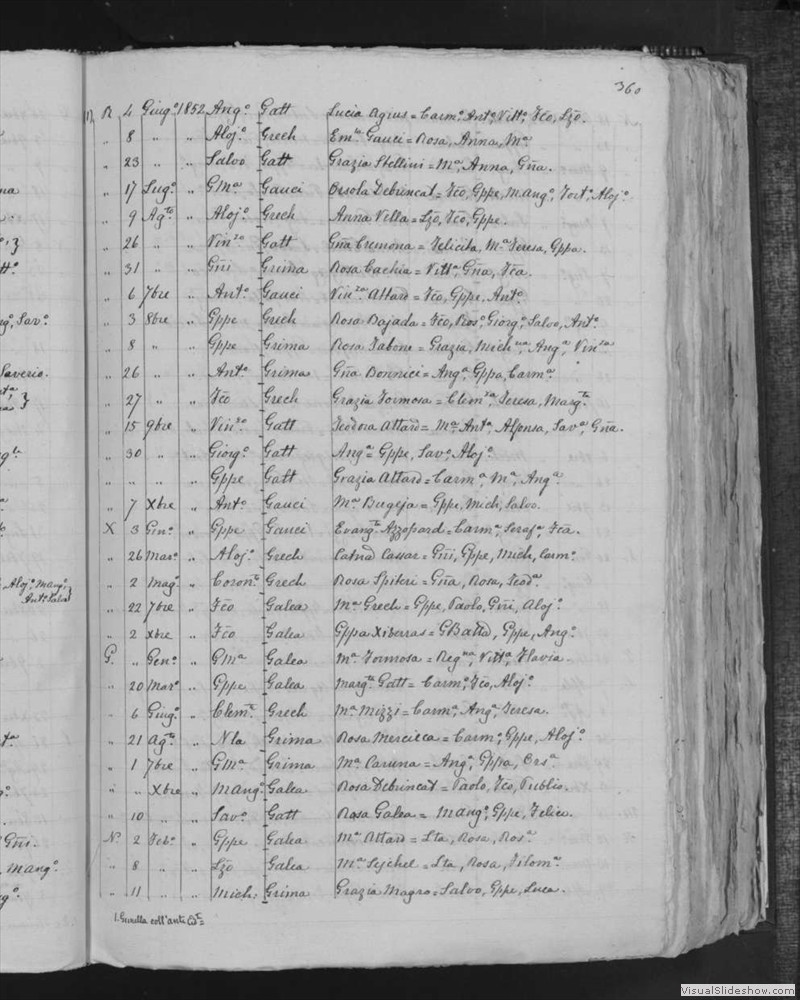 360
R 4 Giugº 1852 Angº Gatt Lucia Agius = Carmº, Antº, Vittº, Fco, Lzo.
" 8 " " Alojº Grech Emla Gauci = Rosa, Anna, Mª
" 23 " " Salvo Gatt Grazia Stellini = Mª, Anna, Gña.
" 17 Lugº " GMª Gauci Orsola Debrincat = Fco, Gppe, Mangº, Fortº, Alojº
" 9 Agto " Alojº Grech Anna Vella = Lzo, Fco, Gppe.
" 26 " " Vinzo Gatt Gña Cremona = Felicita, Mª Teresa, Gppa.
" 31 " " Gñi Grima Rosa Cachia = Vittª, Gña, Fca.
" 6 7bre " Antº Gauci Vinza Attard = Fco, Gppe, Antº
" 3 8bre " Gppe Grech Rosa Bajada = Fco, Rosº, Giorgº, Salvo, Antº
" 8 " " Gppe Grima Rosa Tabone = Grazia, Michna, Angª, Vinza
" 26 " " Antº Grima Gña Bonnici = Angª, Gppa, Carmª
" 27 " " Fco Grech Grazia Formosa = Cleonza, Teresa, Margta
" 15 9bre " Vinzo Gatt Teodora Attard = Mª, Antª, Alfonsa, Savª, Gña.
" 30 " " Giorgº Gatt Angª = Gppe, Savº, Alojº
" " " " Gppe Gatt Grazia Attard = Carmª, Mª, Angª
" 7 Xbre " Antº Gauci Mª Bugeja = Gppe, Mich, Salvo.
X 3 Genº " Gppe Gauci Evangta Azzopard = Carmª, Serafª, Fca.
" 26 Marº " Alojº Grech Catna Cassar = Gñi, Gppe, Mich, Carmº
" 2 Magº " Coronto Grech Rosa Spiteri = Gña, Rosa, Teodª
" 22 7bre " Fco Galea Mª Grech = Gppe, Paolo, Gñi, Alojº
" 2 Xbre " Fco Galea Gppa Xiberras = GBatta, Gppe, Angº
G. " Genº " GMª Galea Mª Formosa = Regna, Vittª, Flavia.
" 20 Marº " Gppe Galea Margta Gatt = Carmº, Fco, Alojº
" 6 Giugº " Clemte Grech Mª Mizzi = Carmª, Angª, Teresa.
" 21 Agto " Nla Grima Rosa Mercieca = Carmº, Gppe, Alojº
" 1 7bre " GMª Grima Mª Caruna = Angª, Gppa, Orsª
" " Xbre " Mangº Galea Rosa Debrincat = Paolo, Fco, Publio.
" 10 " " Savº Gatt Rosa Galea = Mangº, Gppe, Felice.
N. 2 Febº " Gppe Galea Mª Attard = Lta, Rosa, Rosª
" 8 " " Lzo Galea Mª Sejchel = Lta, Rosa, Filomª
" 11 " " Mich: Grima Grazia Magro = Salvo, Gppe, Luca.
Saverio.
Alojº, Mangº,
Antº, Salvo
Gñi.
Mangº
VisualSlideshow.com